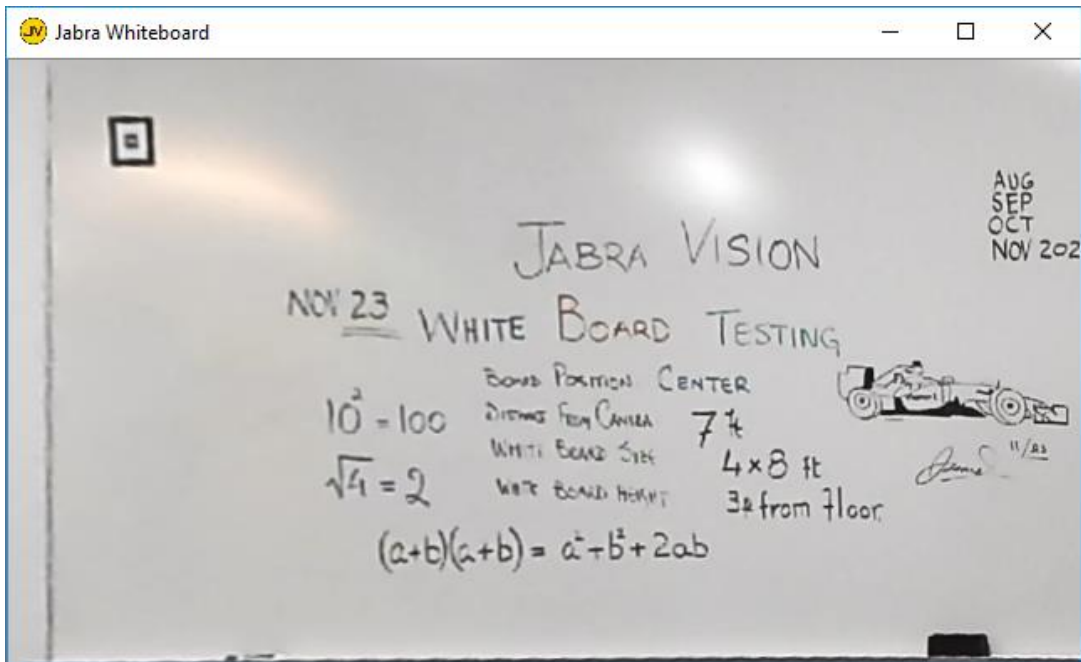 Jabra Whiteboard
AUG
SEP
OCT
NOV 202
JABRA VISION
NOV 23 WHITE BOARD TESTING
BOARD POSITION CENTER
10² = 100 DISTANCE FROM CAMERA 7 ft
WHITE BOARD SIZE 4 × 8 ft
√4 = 2 WHITE BOARD HEIGHT 3ft from floor
(a+b)(a+b) = a² + b² + 2ab
11/23